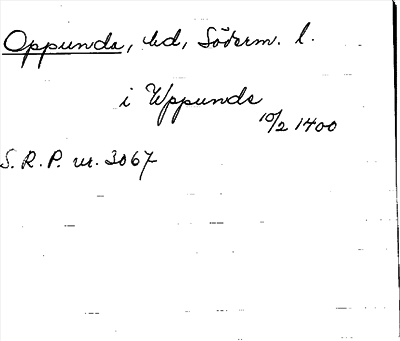 Oppunda, hd, Söderm. l.
i Wppunda
10/2 1400
S.R.P. nr. 3067